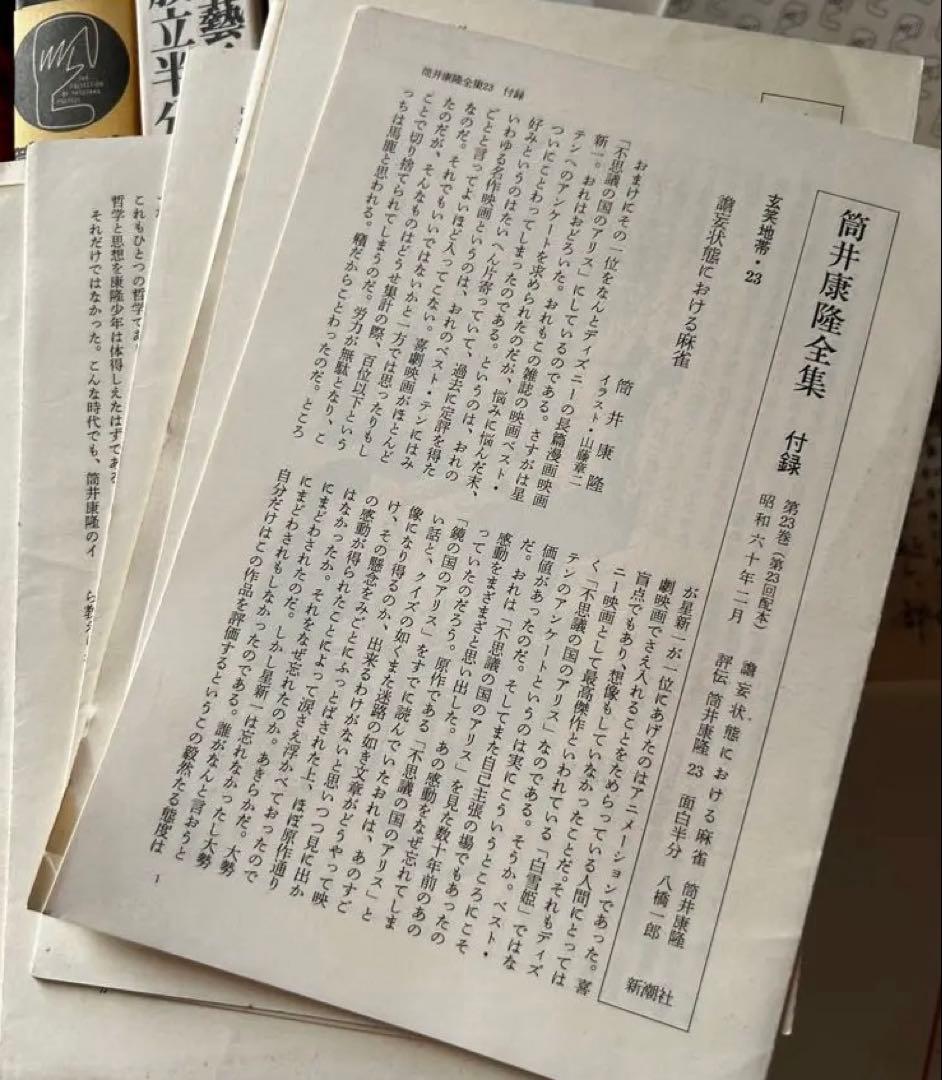 筒井康隆全集23 付録
筒井康隆全集 付録 第23巻(第23回配本)
昭和六十年二月
譫妄状態における麻雀 筒井康隆
評伝 筒井康隆 23 面白半分 八橋一郎
新潮社
玄笑地帯・23
譫妄状態における麻雀
筒井康隆
イラスト・山藤章二
おまけにその一位をなんとディズニーの長篇漫画映画
「不思議の国のアリス」にしているのである。さすがは星
新一。おれはおどろいた。おれもこの雑誌の映画ベスト・
テンへのアンケートを求められたのだが、悩みに悩んだ末、
ついにことわってしまったのである。というのは、おれの
好みというのはたいへん片寄っていて、過去に定評を得た
いわゆる名作映画というのは、おれのベスト・テンにはみ
ごとと言ってよいほど入ってこない。喜劇映画がほとんど
なのだ。それでもいいではないかと一方では思ったりもし
たのだが、そんなものはどうせ集計の際、百位以下という
ことで切り捨てられてしまうのだ。労力が無駄となり、こ
っちは馬鹿と思われる。癪だからことわったのだ。ところ
が星新一が一位にあげたのはアニメーションであった。喜
劇映画でさえ入れることをためらっている人間にとっては
盲点でもあり、想像もしていなかったことだ。それもディズ
ニー映画として最高傑作といわれている「白雪姫」ではな
く「不思議の国のアリス」なのである。そうか。ベスト・
テンのアンケートというのは実にこういうところにこそ
価値があったのだ。そしてまた自己主張の場でもあったの
だ。おれは「不思議の国のアリス」を見た数十年前のあの
感動をまざまざと思い出した。あの感動をなぜ忘れてしま
っていたのだろう。原作である「不思議の国のアリス」と
「鏡の国のアリス」をすでに読んでいたおれは、あのすご
い話と、クイズの如くまた迷路の如き文章がどうやって映
像になり得るのか、出来るわけがないと思いつつ見に出か
け、その懸念をみごとにふっとばされた上、ほぼ原作通り
の感動が得られたことによって涙さえ浮かべておったので
はなかったか。それをなぜ忘れたのか。あきらかだ。大勢
にまどわされたのだ。しかし星新一は忘れなかったし大勢
にまどわされもしなかったのである。誰がなんと言おうと
自分だけはこの作品を評価するというこの毅然たる態度は
1
これもひとつの哲学であ
哲学と思想を康隆少年は体得しえたはずである
それだけではなかった。こんな時代でも、筒井康隆のイ